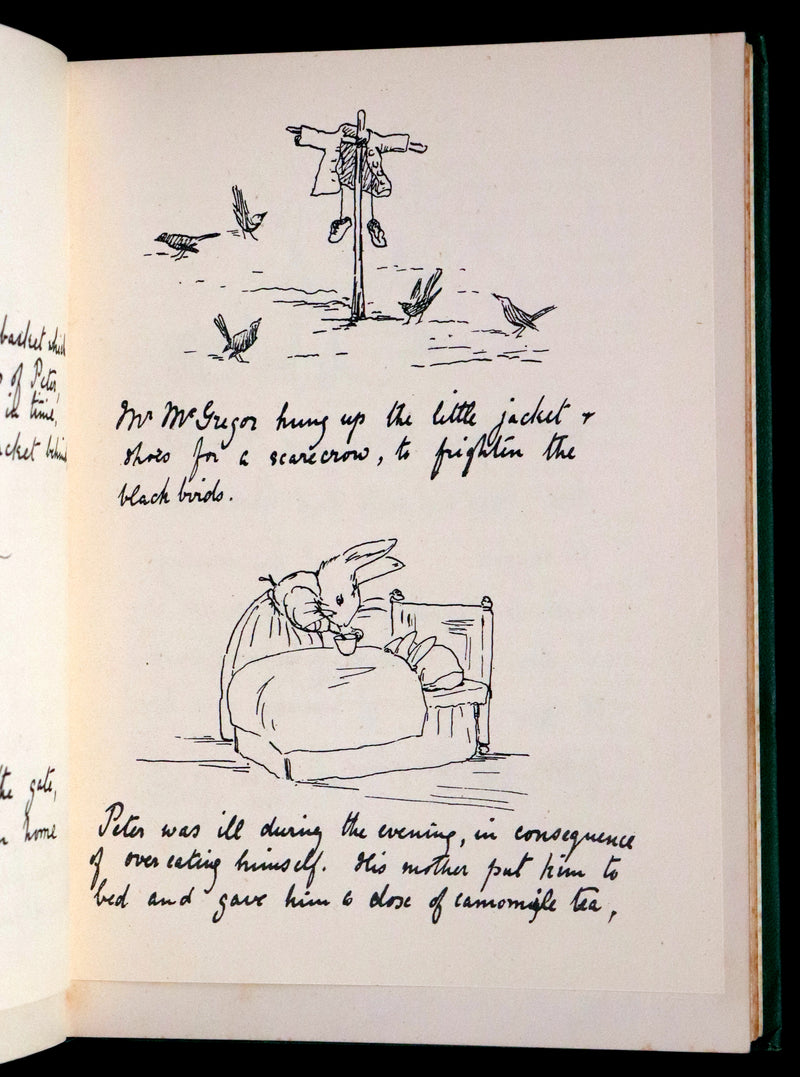 basket which
of Peter,
in time,
jacket behind
the gate,
home
Mr McGregor hung up the little jacket &
shoes for a scarecrow, to frighten the
black birds.
Peter was ill during the evening, in consequence
of over eating himself. His mother put him to
bed and gave him a dose of camomile tea,